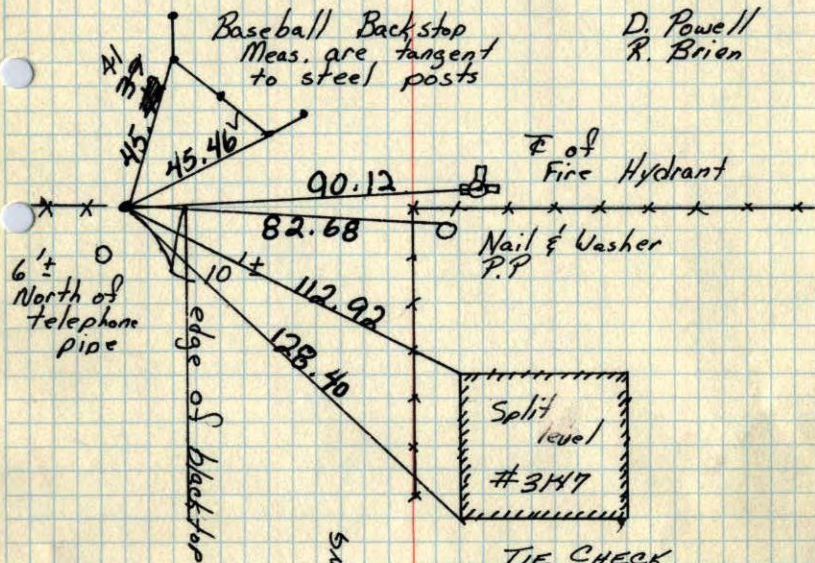 Baseball Backstop
Meas. are tangent
to steel posts
D. Powell
R. Brien
41
39
45.
45.46
90.12
℄ of
Fire Hydrant
82.68
Nail & Washer
P.P
6'±
North of
telephone
pipe
10'±
112.92
128.40
edge of blacktop
Split
level
#3147
TIE CHECK